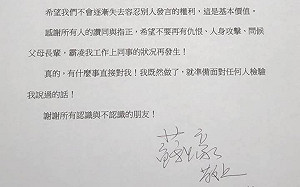 希望我們不會逐漸失去容忍別人發言的權利，這是基本價值。
感謝所有人的讚同與指正，希望不要再有仇恨、人身攻擊、問候
父母長輩，霸凌我工作上同事的狀況再發生！
真的，有什麼事直接對我！我既然做了，就準備面對任何人檢驗
我說過的話！
謝謝所有認識與不認識的朋友！